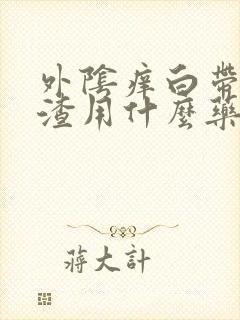 外陰痒白帶
渣用什麼藥
蔣大計